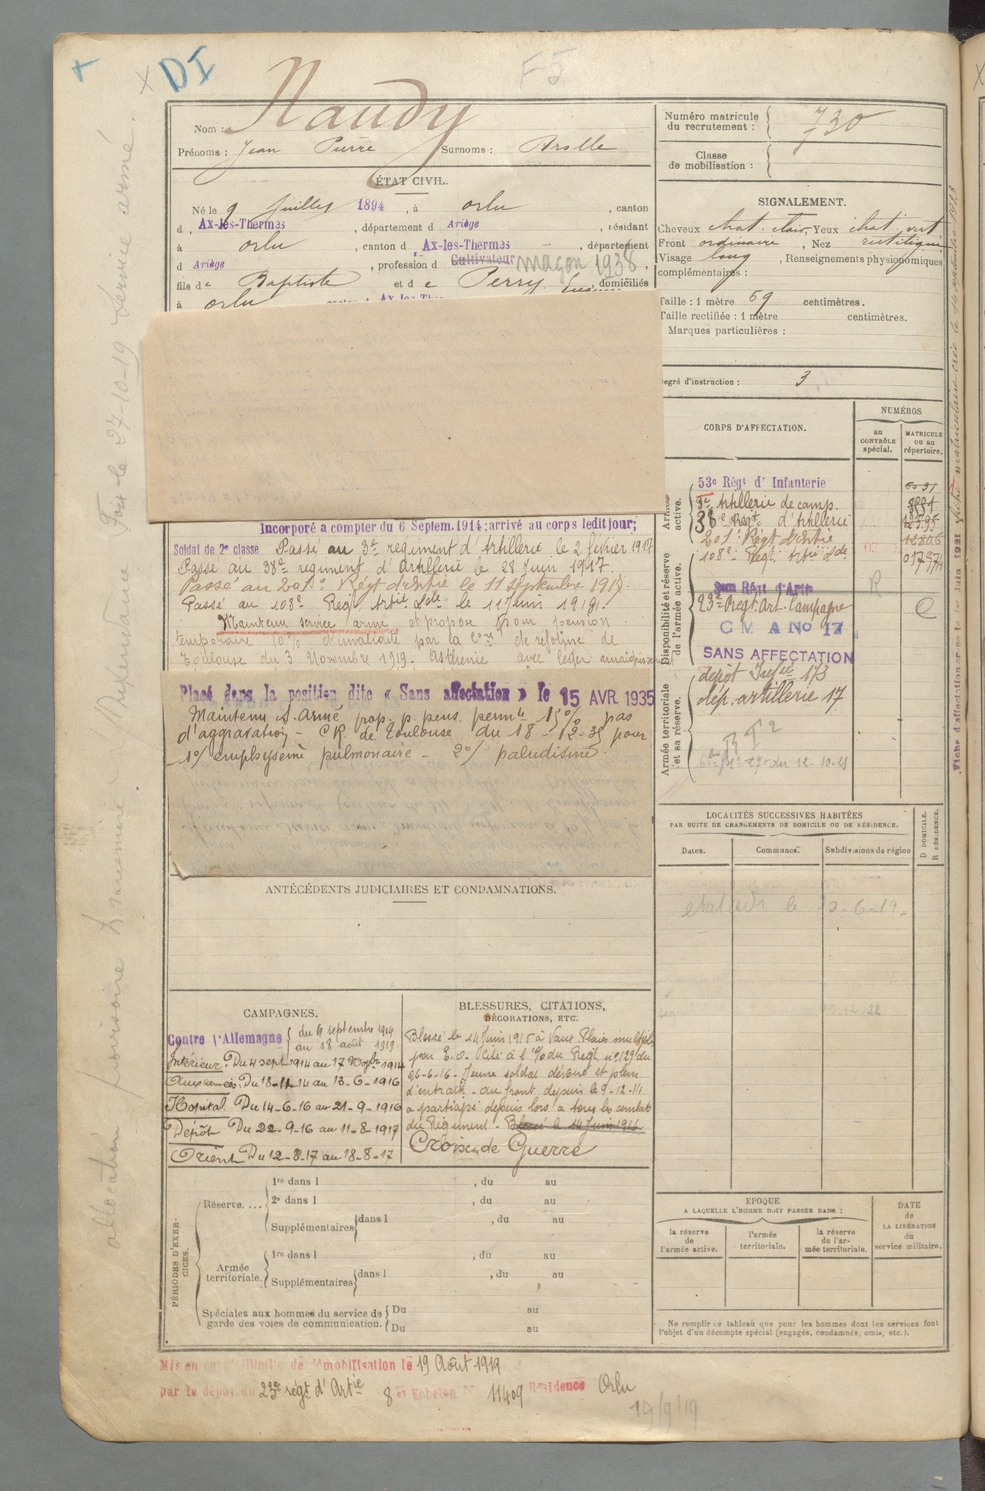 DI
F5
Nom : Naudy
Prénoms : Jean Pierre Surnoms :
Numéro matricule du recrutement : 730
Classe de mobilisation :
ÉTAT CIVIL.
Né le 9 Juillet 1894, à Orlu, canton
d Ax-les-Thermes, département d Ariège, résidant
à Orlu, canton d Ax-les-Thermes, département
d Ariège, profession d Cultivateur maçon 1938,
fils de Baptiste et de Perry, domiciliés
à Orlu
SIGNALEMENT.
Cheveux chat. clair, Yeux chat. vert
Front ordinaire, Nez rectiligne
Visage long, Renseignements physionomiques
complémentaires :
Taille : 1 mètre 69 centimètres.
Taille rectifiée : 1 mètre centimètres.
Marques particulières :
egré d'instruction : 3
CORPS D'AFFECTATION.
NUMÉROS
au CONTRÔLE spécial.
MATRICULE ou au répertoire.
Armée active.
53e Régt d'Infanterie
3e Artillerie de camp.
38e Régt d'Artillerie
201e Régt d'Artie
108e Régt Artie Lde
Disponibilité et réserve de l'armée active.
23e Régt Art. Campagne
C M A No 17
SANS AFFECTATION
Armée territoriale et sa réserve.
dépôt Infie 173
dép. artillerie 17
Incorporé à compter du 6 Septem. 1914; arrivé au corps ledit jour;
Soldat de 2e classe Passé au 3e régiment d'Artillerie le 2 février 1917
Passé au 38e régiment d'Artillerie le 28 Juin 1917.
Passé au 201e Régt d'Artie le 11 septembre 1918.
Passé au 108e Régt Artie Lde le 11 Juin 1919.
Maintenu service armé et proposé pour pension
temporaire 10% d'invalidité par la Con de réforme de
Toulouse du 3 Novembre 1919. Asthénie avec léger amaigrissement
Placé dans la position dite « Sans affectation » le 15 AVR. 1935
Maintenu S. Armé prop. p. pens. permte 15% pas
d'aggravation - CR. de Toulouse du 18-12-35 pour
1°/ emphysème pulmonaire - 2°/ paludisme.
LOCALITÉS SUCCESSIVES HABITÉES
PAR SUITE DE CHANGEMENTS DE DOMICILE OU DE RÉSIDENCE.
Dates. Communes. Subdivisions de région
D DOMICILE. R RÉSIDENCE.
ANTÉCÉDENTS JUDICIAIRES ET CONDAMNATIONS.
CAMPAGNES.
Contre l'Allemagne du 6 septembre 1914
au 18 août 1919.
Intérieur. Du 4 sept 1914 au 17 Nobre 1914
Aux armées. Du 18-11-14 au 13-6-1916
Hopital Du 14-6-16 au 21-9-1916
Dépôt Du 22-9-16 au 11-8-1917
Orient Du 12-8-17 au 18-8-17
BLESSURES, CITATIONS,
DÉCORATIONS, ETC.
Blessé le 14 Juin 1915 à Vaux. Plaie multiple
par E.O. Cité à l'O/ du Régt n° 129 du
26-6-16 - Jeune soldat dévoué et plein
d'entrain - au front depuis le 9-12-14
a participé depuis lors à tous les combats
du Régiment - Blessé le 14 Juin 1916
Croix de Guerre
PÉRIODES D'EXERCICES.
Réserve.... 1re dans l , du au
2e dans l , du au
Supplémentaires dans l , du au
Armée territoriale. 1re dans l , du au
Supplémentaires dans l , du au
Spéciales aux hommes du service de garde des voies de communication. Du au
Du au
EPOQUE
A LAQUELLE L'HOMME DOIT PASSER DANS :
la réserve de l'armée active.
l'armée territoriale.
la réserve de l'armée territoriale.
DATE de LA LIBÉRATION du service militaire.
Ne remplir ce tableau que pour les hommes dont les services font
l'objet d'un décompte spécial (engagés, condamnés, omis, etc.).
Mis en congé illimité de démobilisation le 19 Août 1919
par le dépôt du 23e régt d'Artie 8e Echelon No 11409 Résidence Orlu
19/9/19